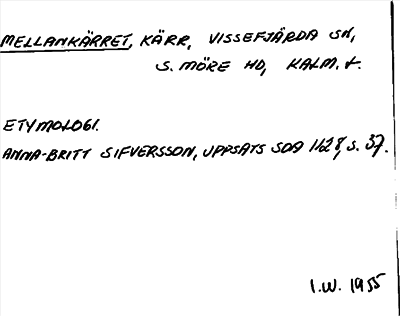 MELLANKÄRRET, KÄRR, VISSEFJÄRDA SN,
S. MÖRE HD, KALM. L.
ETYMOLOGI.
ANNA-BRITT SIFVERSSON, UPPSATS SDA 1628, S. 37.
I.W. 1955